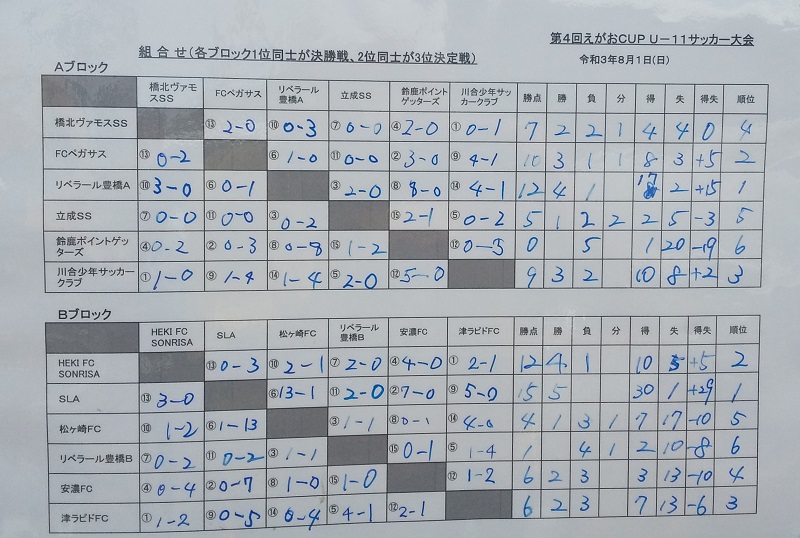 第4回えがおCUP U－11サッカー大会
組 合 せ（各ブロック1位同士が決勝戦、2位同士が3位決定戦）
令和3年8月1日(日)
Aブロック
橋北ヴァモスSS FCペガサス リベラール豊橋A 立成SS 鈴鹿ポイントゲッターズ 川合少年サッカークラブ 勝点 勝 負 分 得 失 得失 順位
橋北ヴァモスSS ⑬ 2-0 ⑩ 0-3 ⑦ 0-0 ④ 2-0 ① 0-1 7 2 2 1 4 4 0 4
FCペガサス ⑬ 0-2 ⑥ 1-0 ⑪ 0-0 ② 3-0 ⑨ 4-1 10 3 1 1 8 3 +5 2
リベラール豊橋A ⑩ 3-0 ⑥ 0-1 ③ 2-0 ⑧ 8-0 ⑭ 4-1 12 4 1 17 2 +15 1
立成SS ⑦ 0-0 ⑪ 0-0 ③ 0-2 ⑮ 2-1 ⑤ 0-2 5 1 2 2 2 5 -3 5
鈴鹿ポイントゲッターズ ④ 0-2 ② 0-3 ⑧ 0-8 ⑮ 1-2 ⑫ 0-5 0 5 1 20 -19 6
川合少年サッカークラブ ① 1-0 ⑨ 1-4 ⑭ 1-4 ⑤ 2-0 ⑫ 5-0 9 3 2 10 8 +2 3
Bブロック
HEKI FC SONRISA SLA 松ヶ崎FC リベラール豊橋B 安濃FC 津ラピドFC 勝点 勝 負 分 得 失 得失 順位
HEKI FC SONRISA ⑬ 0-3 ⑩ 2-1 ⑦ 2-0 ④ 4-0 ① 2-1 12 4 1 10 5 +5 2
SLA ⑬ 3-0 ⑥ 13-1 ⑪ 2-0 ② 7-0 ⑨ 5-0 15 5 30 1 +29 1
松ヶ崎FC ⑩ 1-2 ⑥ 1-13 ③ 1-1 ⑧ 0-1 ⑭ 4-0 4 1 3 1 7 17 -10 5
リベラール豊橋B ⑦ 0-2 ⑪ 0-2 ③ 1-1 ⑮ 0-1 ⑤ 1-4 1 4 1 2 10 -8 6
安濃FC ④ 0-4 ② 0-7 ⑧ 1-0 ⑮ 1-0 ⑫ 1-2 6 2 3 3 13 -10 4
津ラピドFC ① 1-2 ⑨ 0-5 ⑭ 0-4 ⑤ 4-1 ⑫ 2-1 6 2 3 7 13 -6 3